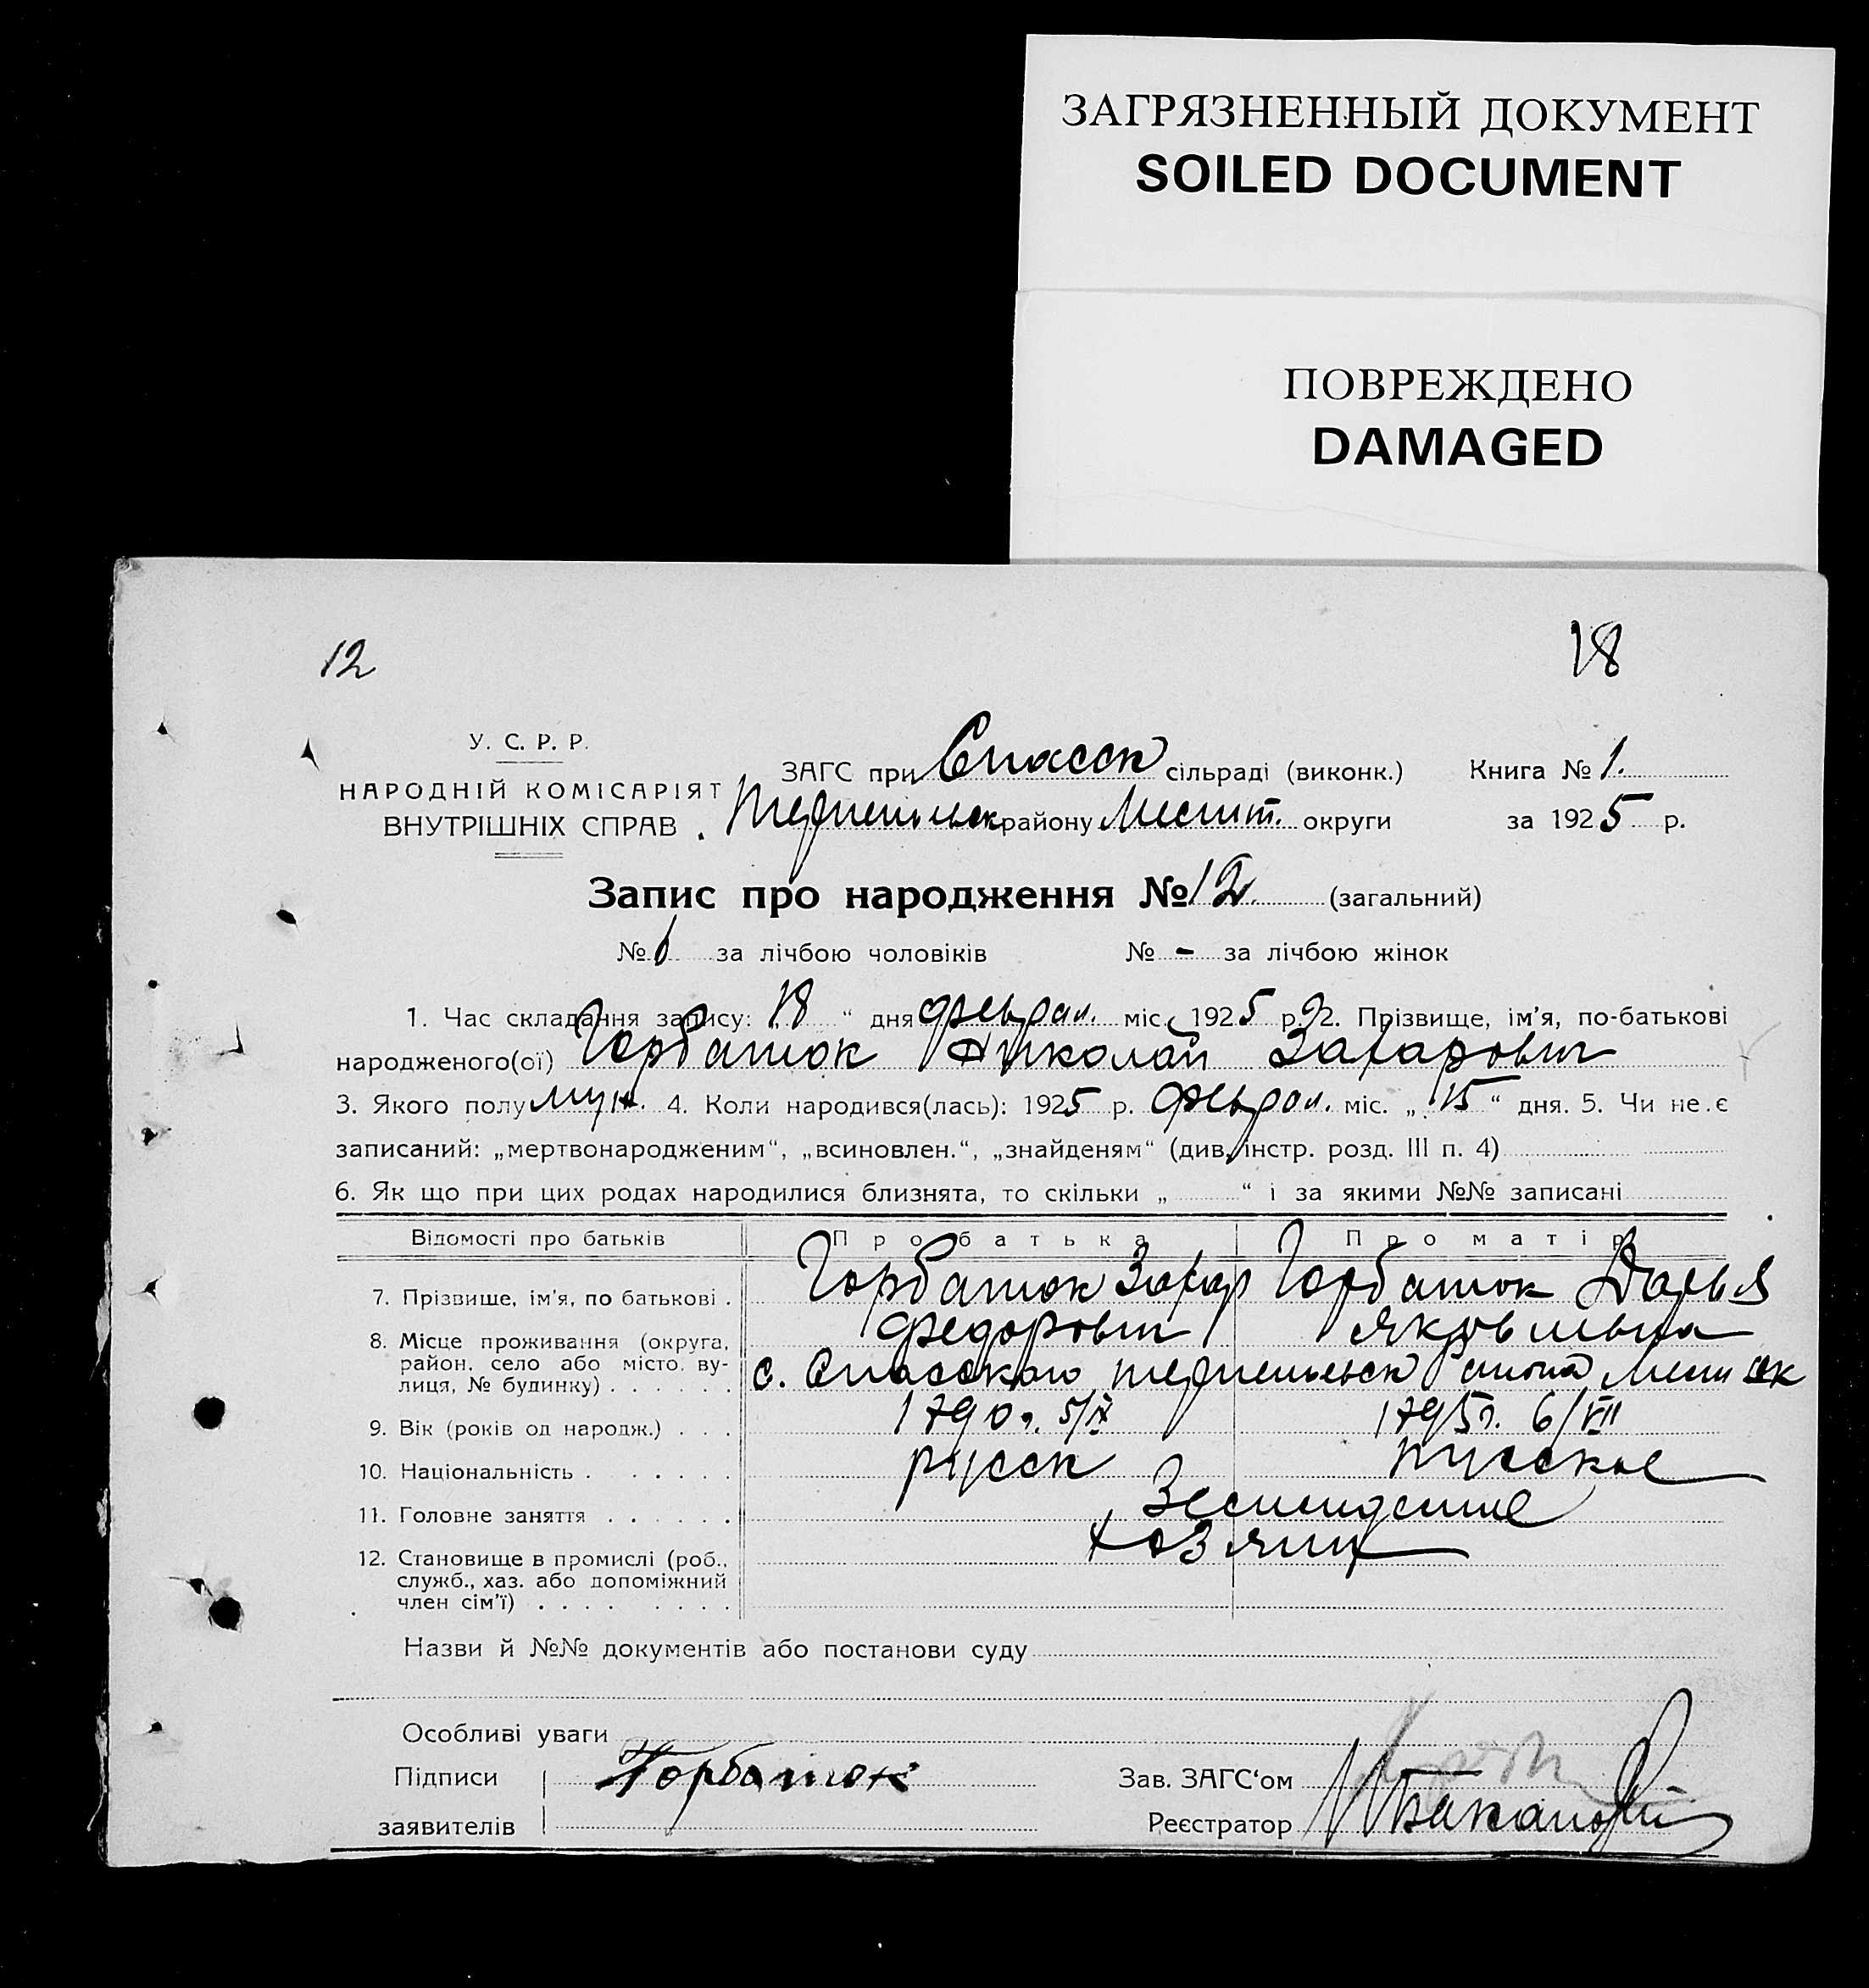 ЗАГРЯЗНЕННЫЙ ДОКУМЕНТ
SOILED DOCUMENT
ПОВРЕЖДЕНО
DAMAGED
12
18
У. С. Р. Р.
НАРОДНІЙ КОМІСАРІЯТ
ВНУТРІШНІХ СПРАВ
ЗАГС при Спасск сільраді (виконк.) Книга № 1.
району округи за 1925 р.
Запис про народження № 12. (загальний)
№ за лічбою чоловіків № - за лічбою жінок
1. Час складання запису: „18“ дня феврал. міс. 1925 р. 2. Прізвище, ім'я, по-батькові
народженого(ої) Горбатюк Николай Захарович
3. Якого полу муж. 4. Коли народився(лась): 1925 р. феврал. міс. „15“ дня. 5. Чи не є
записаний: „мертвонародженим“, „всиновлен.“, „знайденям“ (див. інстр. розд. III п. 4)
6. Як що при цих родах народилися близнята, то скільки „ “ і за якими №№ записані
Відомості про батьків Про батька Про матір
7. Прізвище, ім'я, по батькові . Горбатюк Захар Горбатюк Дарья
Федорович Яковлевна
8. Місце проживання (округа,
район, село або місто, ву-
лиця, № будинку) . . . . . . с. Спасского
9. Вік (років од народж.) . . . 5/IX 6/VII
10. Національність . . . . . . русск русская
11. Головне заняття . . . . . . Земледелие
хозяин
12. Становище в промислі (роб.,
служб., хаз. або допоміжний
член сім'ї) . . . . . . . .
Назви й №№ документів або постанови суду
Особливі уваги
Підписи Горбатюк Зав. ЗАГС‘ом
заявителів Реєстратор